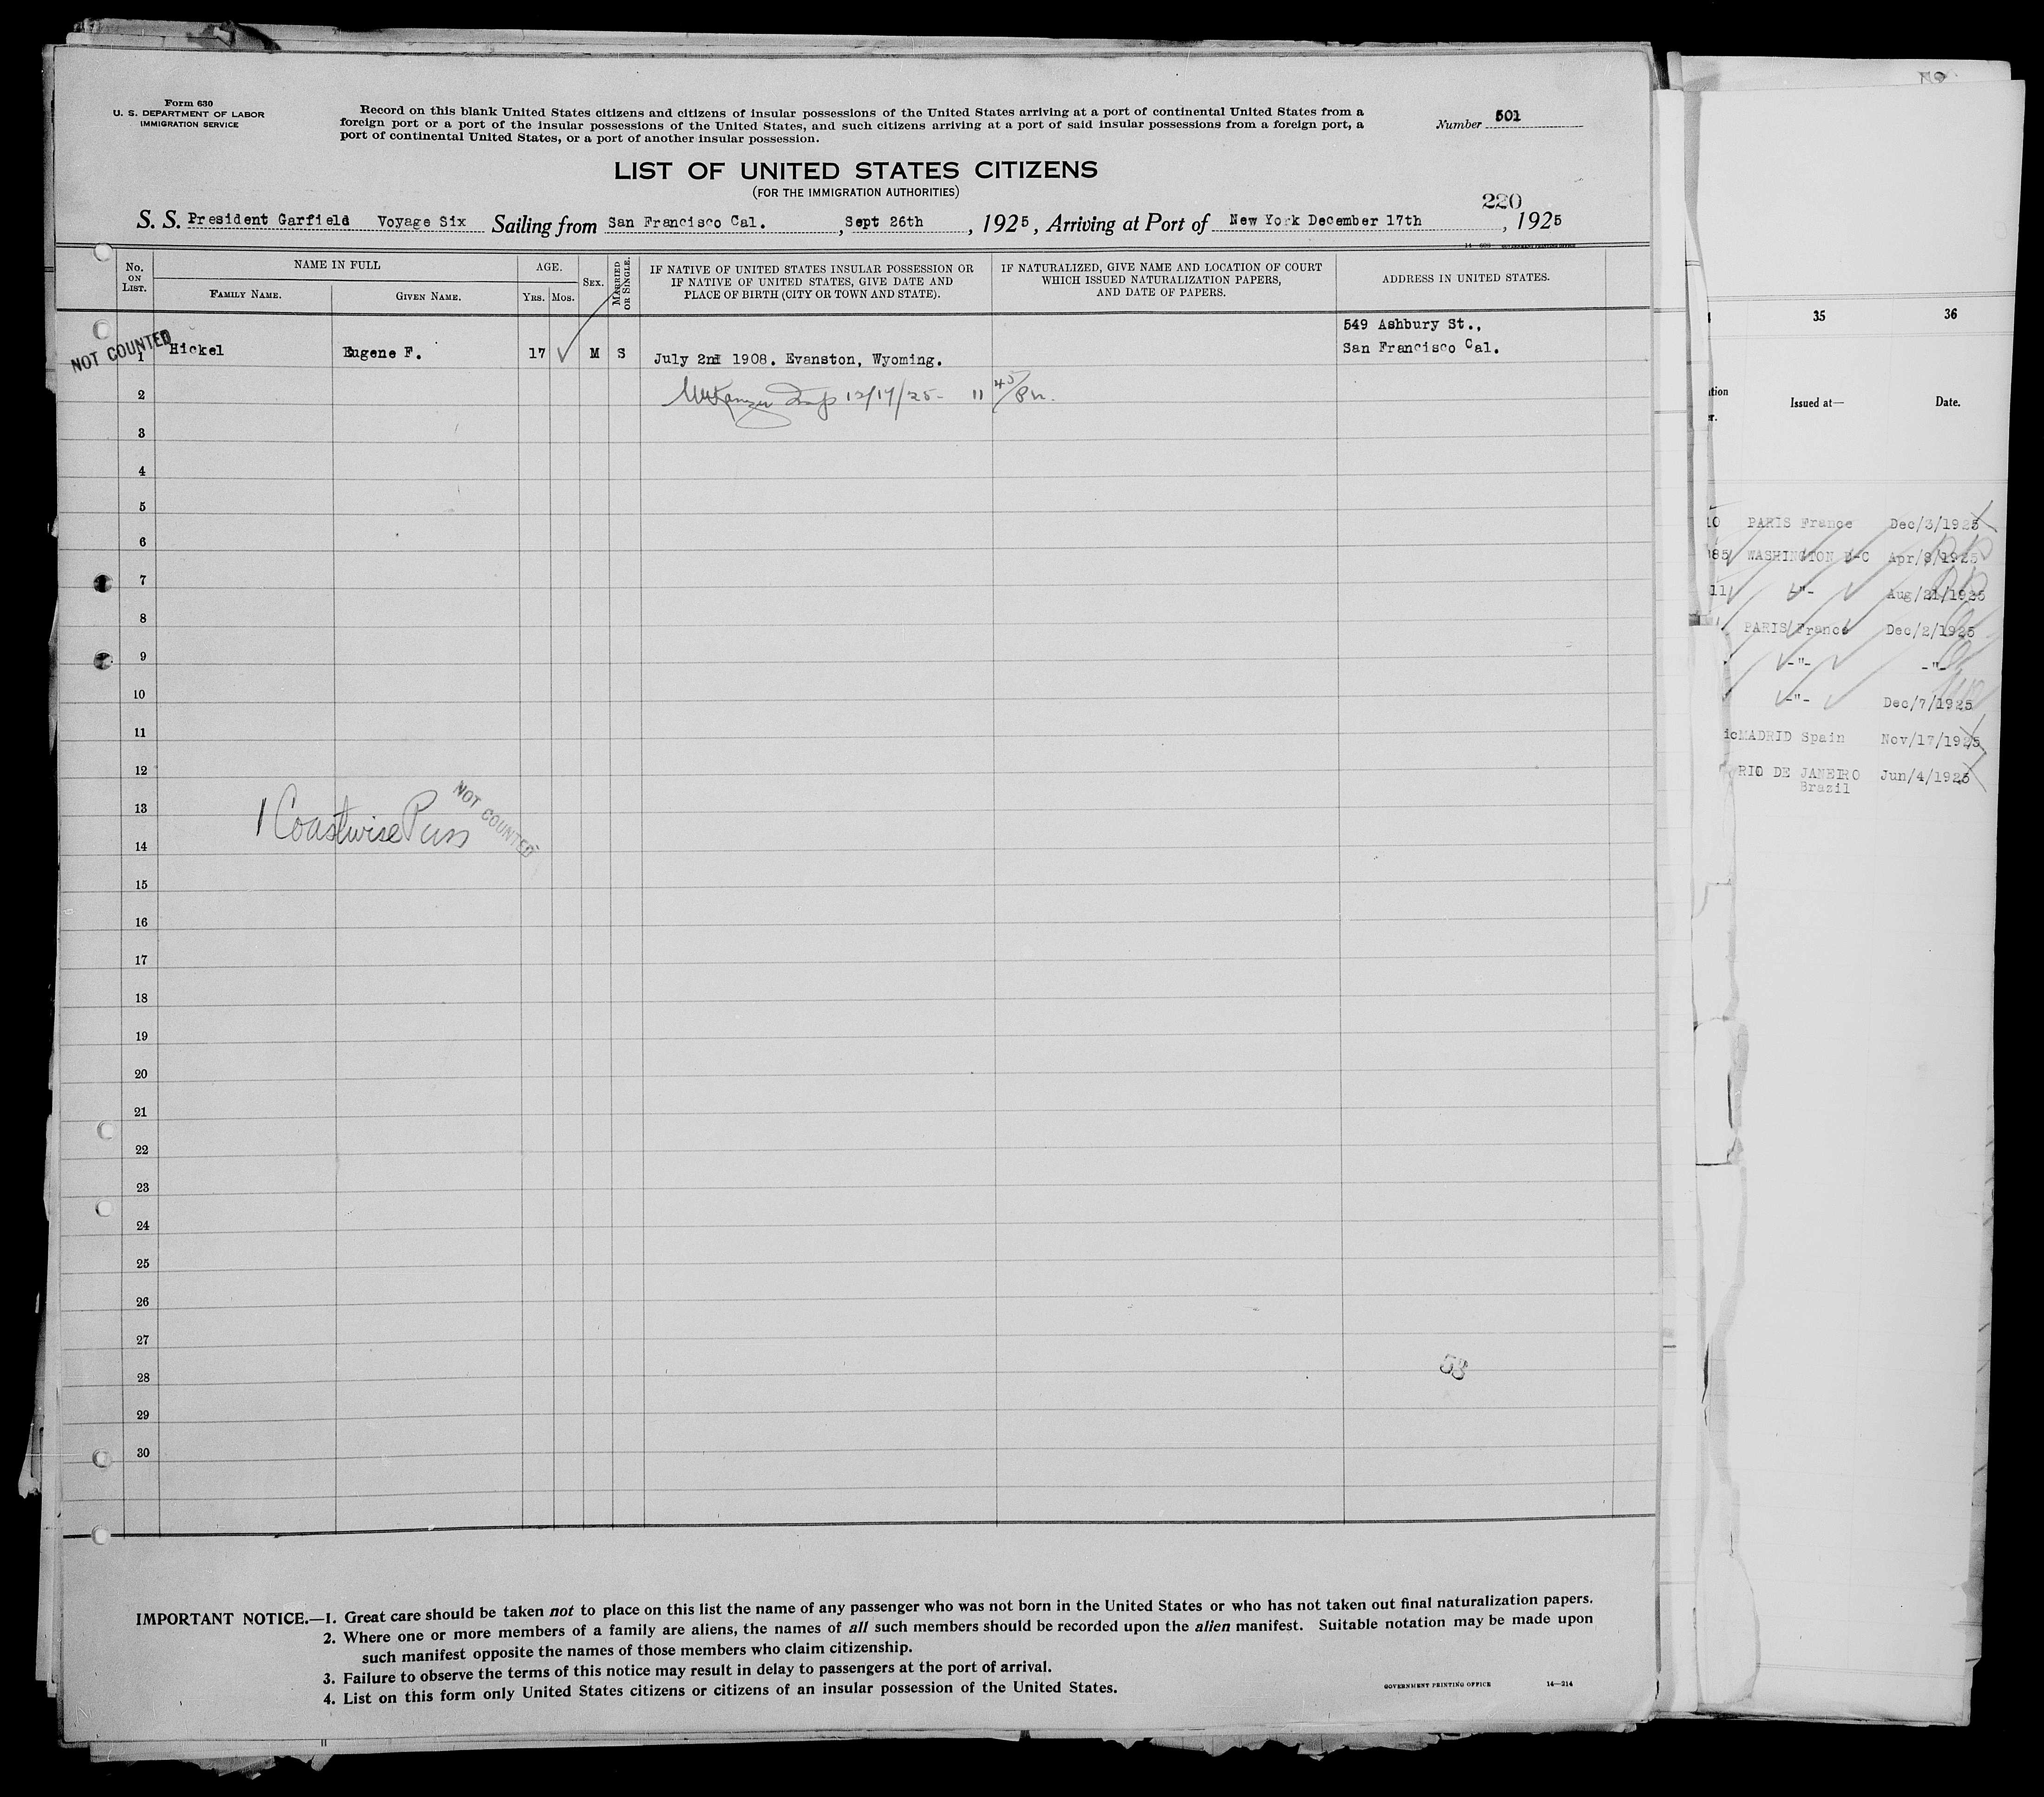 Form 630
U. S. DEPARTMENT OF LABOR
IMMIGRATION SERVICE
Record on this blank United States citizens and citizens of insular possessions of the United States arriving at a port of continental United States from a
foreign port or a port of the insular possessions of the United States, and such citizens arriving at a port of said insular possessions from a foreign port, a
port of continental United States, or a port of another insular possession.
Number 501
LIST OF UNITED STATES CITIZENS
(FOR THE IMMIGRATION AUTHORITIES)
220
S. S. President Garfield Voyage Six Sailing from San Francisco Cal. , Sept 26th , 1925 , Arriving at Port of New York December 17th , 1925
No. ON LIST.
NAME IN FULL
FAMILY NAME.
GIVEN NAME.
AGE.
YRS. MOS.
SEX.
MARRIED OR SINGLE.
IF NATIVE OF UNITED STATES INSULAR POSSESSION OR
IF NATIVE OF UNITED STATES, GIVE DATE AND
PLACE OF BIRTH (CITY OR TOWN AND STATE).
IF NATURALIZED, GIVE NAME AND LOCATION OF COURT
WHICH ISSUED NATURALIZATION PAPERS,
AND DATE OF PAPERS.
ADDRESS IN UNITED STATES.
NOT COUNTED
1 Hickel Eugene F. 17 M S July 2nd 1908. Evanston, Wyoming.
549 Ashbury St.,
San Francisco Cal.
2
12/17/25 - 11 45/
3
4
5
6
7
8
9
10
11
12
13
1 Coastwise Pass
NOT COUNTED
14
15
16
17
18
19
20
21
22
23
24
25
26
27
28
29
30
53
IMPORTANT NOTICE.—1. Great care should be taken not to place on this list the name of any passenger who was not born in the United States or who has not taken out final naturalization papers.
2. Where one or more members of a family are aliens, the names of all such members should be recorded upon the alien manifest. Suitable notation may be made upon
such manifest opposite the names of those members who claim citizenship.
3. Failure to observe the terms of this notice may result in delay to passengers at the port of arrival.
4. List on this form only United States citizens or citizens of an insular possession of the United States.
GOVERNMENT PRINTING OFFICE 14—214
35 36
Issued at— Date.
10 PARIS France Dec/3/1925
85 WASHINGTON D-C Apr/8/1925
11 -"- Aug/21/1925
PARIS France Dec/2/1925
-"- -"-
-"- Dec/7/1925
MADRID Spain Nov/17/1925
RIO DE JANEIRO Jun/4/1925
Brazil